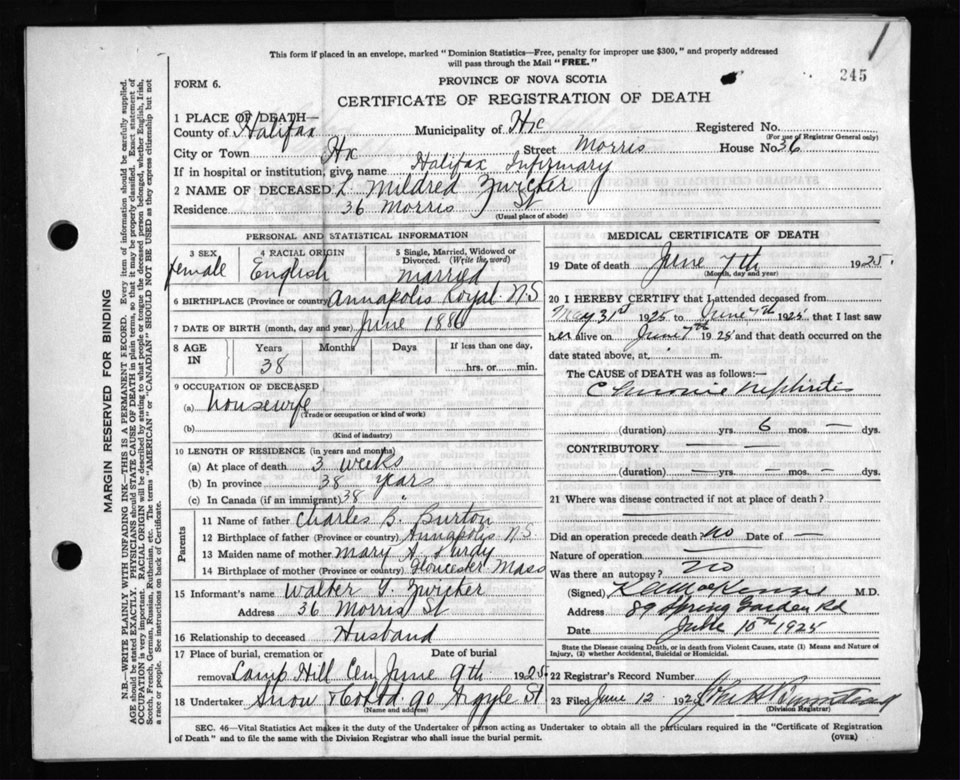 This form if placed in an envelope, marked "Dominion Statistics—Free, penalty for improper use $300," and properly addressed
will pass through the Mail "FREE."
245
FORM 6.
PROVINCE OF NOVA SCOTIA
CERTIFICATE OF REGISTRATION OF DEATH
1 PLACE OF DEATH—
County of Halifax Municipality of Hx Registered No.
(For use of Registrar General only)
City or Town Hx Street Morris House No. 36
If in hospital or institution, give name Halifax Infirmary
2 NAME OF DECEASED L. Mildred Zwicker
Residence 36 Morris St
(Usual place of abode)
PERSONAL AND STATISTICAL INFORMATION
3 SEX female
4 RACIAL ORIGIN English
5 Single, Married, Widowed or Divorced. (Write the word) married
6 BIRTHPLACE (Province or country) Annapolis Royal N.S
7 DATE OF BIRTH (month, day and year) June 1886
8 AGE IN Years Months Days If less than one day,
38 hrs. or min.
9 OCCUPATION OF DECEASED
(a) housewife
(Trade or occupation or kind of work)
(b)
(Kind of industry)
10 LENGTH OF RESIDENCE (in years and months)
(a) At place of death 3 weeks
(b) In province 38 years
(c) In Canada (if an immigrant) 38 "
Parents
11 Name of father Charles B. Burton
12 Birthplace of father (Province or country) Annapolis N.S.
13 Maiden name of mother Mary A.
14 Birthplace of mother (Province or country) Gloucester Mass
15 Informant's name Walter Zwicker
Address 36 Morris St
16 Relationship to deceased Husband
17 Place of burial, cremation or removal Date of burial
Camp Hill Cem June 9th 1925
18 Undertaker Snow & Co Ltd 90 Argyle St
(Name and address)
MEDICAL CERTIFICATE OF DEATH
19 Date of death June 7th 1925.
(Month, day and year)
20 I HEREBY CERTIFY that I attended deceased from
May 31st 1925 to June 7th 1925 that I last saw
her alive on June 7th 1925 and that death occurred on the
date stated above, at m.
The CAUSE of DEATH was as follows:—
Chronic Nephritis
(duration) yrs. 6 mos. — dys.
CONTRIBUTORY — — —
(duration) — yrs. — mos. — dys.
21 Where was disease contracted if not at place of death?
Did an operation precede death? No Date of —
Nature of operation
Was there an autopsy? No
(Signed) M.D.
Address 89 Spring Garden Rd
Date June 10th 1925
State the Disease causing Death, or in death from Violent Causes, state (1) Means and Nature of
Injury, (2) whether Accidental, Suicidal or Homicidal.
22 Registrar's Record Number
23 Filed June 12 1925
(Division Registrar)
SEC. 46—Vital Statistics Act makes it the duty of the Undertaker or person acting as Undertaker to obtain all the particulars required in the "Certificate of Registration
of Death" and to file the same with the Division Registrar who shall issue the burial permit. (OVER)
MARGIN RESERVED FOR BINDING
N.B.—WRITE PLAINLY WITH UNFADING INK—THIS IS A PERMANENT RECORD. Every item of information should be carefully supplied.
AGE should be stated EXACTLY. PHYSICIANS should STATE CAUSE OF DEATH in plain terms, so that it may be properly classified. Exact statement of
OCCUPATION is very important. RACIAL ORIGIN will be described by stating to what people or tongue the deceased person belonged, whether English, Irish,
Scotch, French, German, Russian, Ruthenian, etc. The terms "AMERICAN" or "CANADIAN" SHOULD NOT BE USED as they express citizenship but not
a race or people. See instructions on back of Certificate.